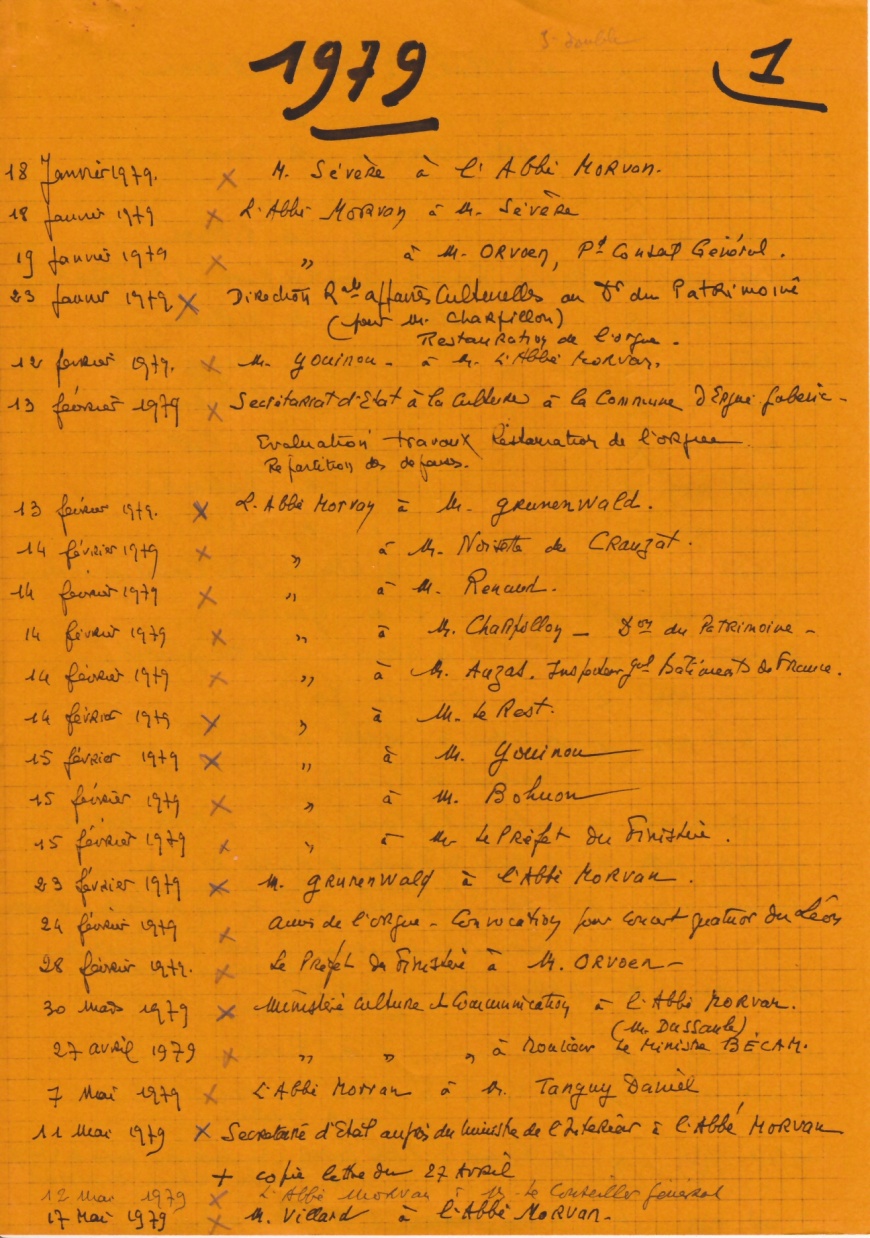 1979
1
18 Janvier 1979. × M. Sévère à l'Abbé Morvan.
18 Janvier 1979 × L'Abbé Morvan à M. Sévère
19 Janvier 1979 × " à M. Orvoen, Pt Conseil Général.
23 Janvier 1979 × Direction Rale affaires Culturelles au Dr du Patrimoine
(pour M. Charpillon)
Restauration de l'orgue.
12 février 1979. × M. Gouinou - à M. L'Abbé Morvan.
13 février 1979 × Secrétariat d'Etat à la Culture à la Commune d'Ergué-Gabéric -
Evaluation travaux Restauration de l'orgue
Répartition des dépenses.
13 février 1979. × L'Abbé Morvan à M. Grunenwald.
14 février 1979 × " à M. Noisette de Crauzat.
14 février 1979 × " à M. Renaud.
14 février 1979 × " à M. Charpillon - Don du Patrimoine -
14 février 1979 × " à M. Auzas. Inspecteur gal Bâtiments de France.
14 février 1979 × " à M. Le Rest.
15 février 1979 × " à M. Gouinou
15 février 1979 × " à M. Bohuon
15 février 1979 × " à M. Le Préfet du Finistère.
23 février 1979 × M. Grunenwald à l'Abbé Morvan.
24 février 1979 × Amis de l'orgue - Convocation pour concert quatuor du Léon
28 février 1979. × Le Préfet du Finistère à M. Orvoen -
30 mars 1979 × Ministère Culture et Communication à l'Abbé Morvan.
(M. Dussaule)
27 avril 1979 × " " " à Monsieur Le Ministre BÉCAM.
7 Mai 1979 × L'Abbé Morvan à M. Tanguy Daniel
11 Mai 1979 × Secrétaire d'Etat auprès du Ministre de l'Intérieur à l'Abbé Morvan
+ copie lettre du 27 Avril
12 Mai 1979 × L'Abbé Morvan à M. Le Conseiller Général
17 Mai 1979 × M. Villard à l'Abbé Morvan.